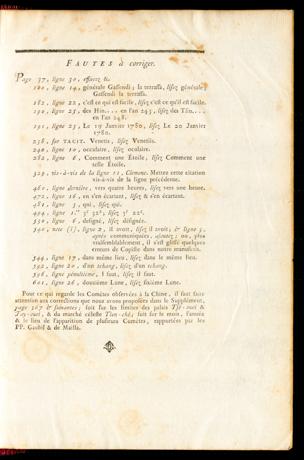 FAUTES à corriger.
Page 37, ligne 30, effacez &.
180, ligne 14, générale Gassendi; la terrassa, lisez générale
Gassendi la terrassa.
182, ligne 22, c'est ce qui est facile, lisez c'est ce qu'il est facile.
190, ligne 25, des Hin.... en l'an 245, lisez des Tsin....
en l'an 248.
191, ligne 25, Le 19 Janvier 1780, lisez Le 20 Janvier
1780.
238, sur TACIT. Venetis, lisez Venetiis.
240, ligne 10, occulaire, lisez oculaire.
282, ligne 6, Comment une Étoile, lisez Comment une
telle Étoile.
329, vis-à-vis de la ligne 11, Clemens. Mettez cette citation
vis-à-vis de la ligne précédente.
461, ligne dernière, vers quatre heures, lisez vers une heure.
472, ligne 16, en s'en écartant, lisez & s'en écartant.
481, ligne 3, qui, lisez qui.
494, ligne 1, 3f 32d, lisez 3f 22d.
530, ligne 6, désigné, lisez désignée.
540, note (i), ligne 2, il avoit, lisez il avoit; & ligne 5,
après communiquées, ajoutez: ou, plus
vraisemblablement, il s'est glissé quelques
erreurs de Copiste dans notre manuscrit.
544, ligne 17, dans même lieu, lisez dans le même lieu.
592, ligne 20, d'un tchang, lisez d'un tchang.
596, ligne pénultième, I faut, lisez il faut.
601, ligne 26, douzième Lune, lisez sixième Lune.
Pour ce qui regarde les Comètes observées à la Chine, il faut faire
attention aux corrections que nous avons proposées dans le Supplément,
page 567 & suivantes; soit sur les limites des palais Tse-ouei &
Tay-ouei, & du marché céleste Tien-ché; soit sur le mois, l'année
& le lieu de l'apparition de plusieurs Comètes, rapportées par les
PP. Gaubil & de Mailla.